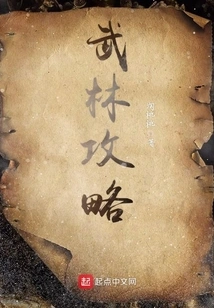 武林攻略
起点
起点中文网